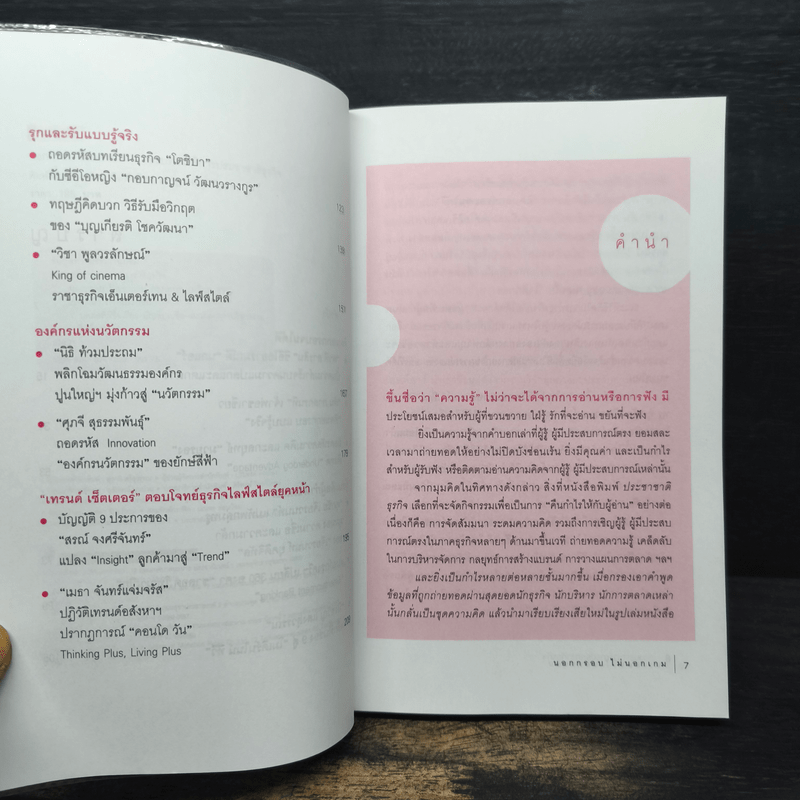 รุกและรับแบบรู้จริง
● ถอดรหัสบทเรียนธุรกิจ “โตชิบา”
กับซีอีโอหญิง “กอบกาญจน์ วัฒนวรางกูร”
123
● ทฤษฎีคิดบวก วิธีรับมือวิกฤต
ของ “บุญเกียรติ โชควัฒนา”
● “วิชา พูลวรลักษณ์”
King of cinema
ราชาธุรกิจเอ็นเตอร์เทน & ไลฟ์สไตล์
151
องค์กรแห่งนวัตกรรม
● “นิธิ ท้วมประถม”
พลิกโฉมวัฒนธรรมองค์กร
ปูนใหญ่ฯ มุ่งก้าวสู่ “นวัตกรรม”
● “ศุภจี สุธรรมพันธุ์”
ถอดรหัส Innovation
“องค์กรนวัตกรรม” ของยักษ์สีฟ้า
“เทรนด์ เซ็ตเตอร์” ตอบโจทย์ธุรกิจไลฟ์สไตล์ยุคหน้า
● บัญญัติ 9 ประการของ
“สรณ์ จงศรีจันทร์”
แปลง “Insight” ลูกค้ามาสู่ “Trend”
● “เมธา จันทร์แจ่มจรัส”
ปฏิวัติเทรนด์อสังหาฯ
ปรากฏการณ์ “คอนโด วัน”
Thinking Plus, Living Plus
คำนำ
ขึ้นชื่อว่า “ความรู้” ไม่ว่าจะได้จากการอ่านหรือการฟัง มี
ประโยชน์เสมอสำหรับผู้ที่ขวนขวาย ใฝ่รู้ รักที่จะอ่าน ขยันที่จะฟัง
ยิ่งเป็นความรู้จากคำบอกเล่าที่ผู้รู้ ผู้มีประสบการณ์ตรง ยอมสละ
เวลามาถ่ายทอดให้อย่างไม่ปิดบังซ่อนเร้น ยิ่งมีคุณค่า และเป็นกำไร
สำหรับผู้รับฟัง หรือติดตามอ่านความคิดจากผู้รู้ ผู้มีประสบการณ์เหล่านั้น
จากมุมคิดในทิศทางดังกล่าว สิ่งที่หนังสือพิมพ์ ประชาชาติ
ธุรกิจ เลือกที่จะจัดกิจกรรมเพื่อเป็นการ “คืนกำไรให้กับผู้อ่าน” อย่างต่อ
เนื่องก็คือ การจัดสัมมนา ระดมความคิด รวมถึงการเชิญผู้รู้ ผู้มีประสบ
การณ์ตรงในภาคธุรกิจหลายๆ ด้านมาขึ้นเวที ถ่ายทอดความรู้ เคล็ดลับ
ในการบริหารจัดการ กลยุทธ์การสร้างแบรนด์ การวางแผนการตลาด ฯลฯ
และยิ่งเป็นกำไรหลายต่อหลายชั้นมากขึ้น เมื่อกรองเอาคำพูด
ข้อมูลที่ถูกถ่ายทอดผ่านสุดยอดนักธุรกิจ นักบริหาร นักการตลาดเหล่า
นั้นกลั่นเป็นชุดความคิด แล้วนำมาเรียบเรียงเสียใหม่ในรูปเล่มหนังสือ
นอกกรอบ ไม่นอกเกม | 7